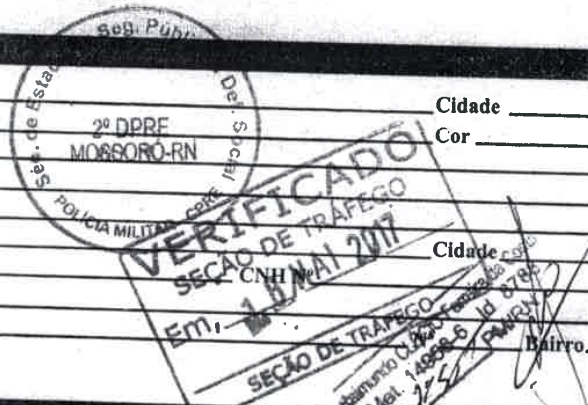 Sec. de Estado Seg. Púb Def. Social
2º DPRE
MOSSORÓ-RN
POLÍCIA MILITAR CPRE
Cidade
Cor
VERIFICADO
SEÇÃO DE TRÁFEGO
Em, MAI 2017
Cidade
CNH Nº
SEÇÃO DE TRÁFEGO
Mat. 14958-6 Id 878
PM/RN
Bairro.